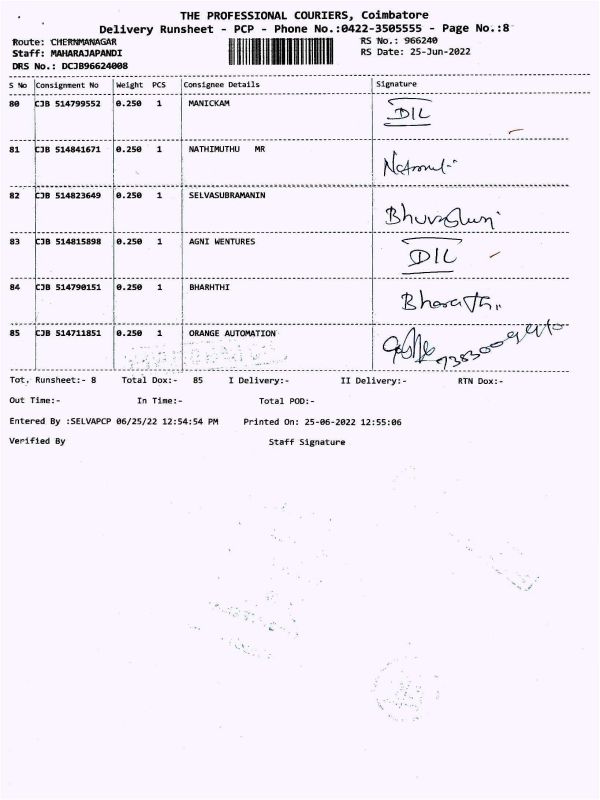 THE PROFESSIONAL COURIERS, Coimbatore
Delivery Runsheet - PCP - Phone No.:0422-3505555 - Page No.:8
Route: CHERNMANAGAR RS No.: 966240
Staff: MAHARAJAPANDI RS Date: 25-Jun-2022
DRS No.: DCJB96624008
S No Consignment No Weight PCS Consignee Details Signature
80 CJB 514799552 0.250 1 MANICKAM
DIL
81 CJB 514841671 0.250 1 NATHIMUTHU MR
82 CJB 514823649 0.250 1 SELVASUBRAMANIN
83 CJB 514815898 0.250 1 AGNI WENTURES
DIL
84 CJB 514790151 0.250 1 BHARHTHI
85 CJB 514711851 0.250 1 ORANGE AUTOMATION
Tot, Runsheet:- 8 Total Dox:- 85 I Delivery:- II Delivery:- RTN Dox:-
Out Time:- In Time:- Total POD:-
Entered By :SELVAPCP 06/25/22 12:54:54 PM Printed On: 25-06-2022 12:55:06
Verified By Staff Signature